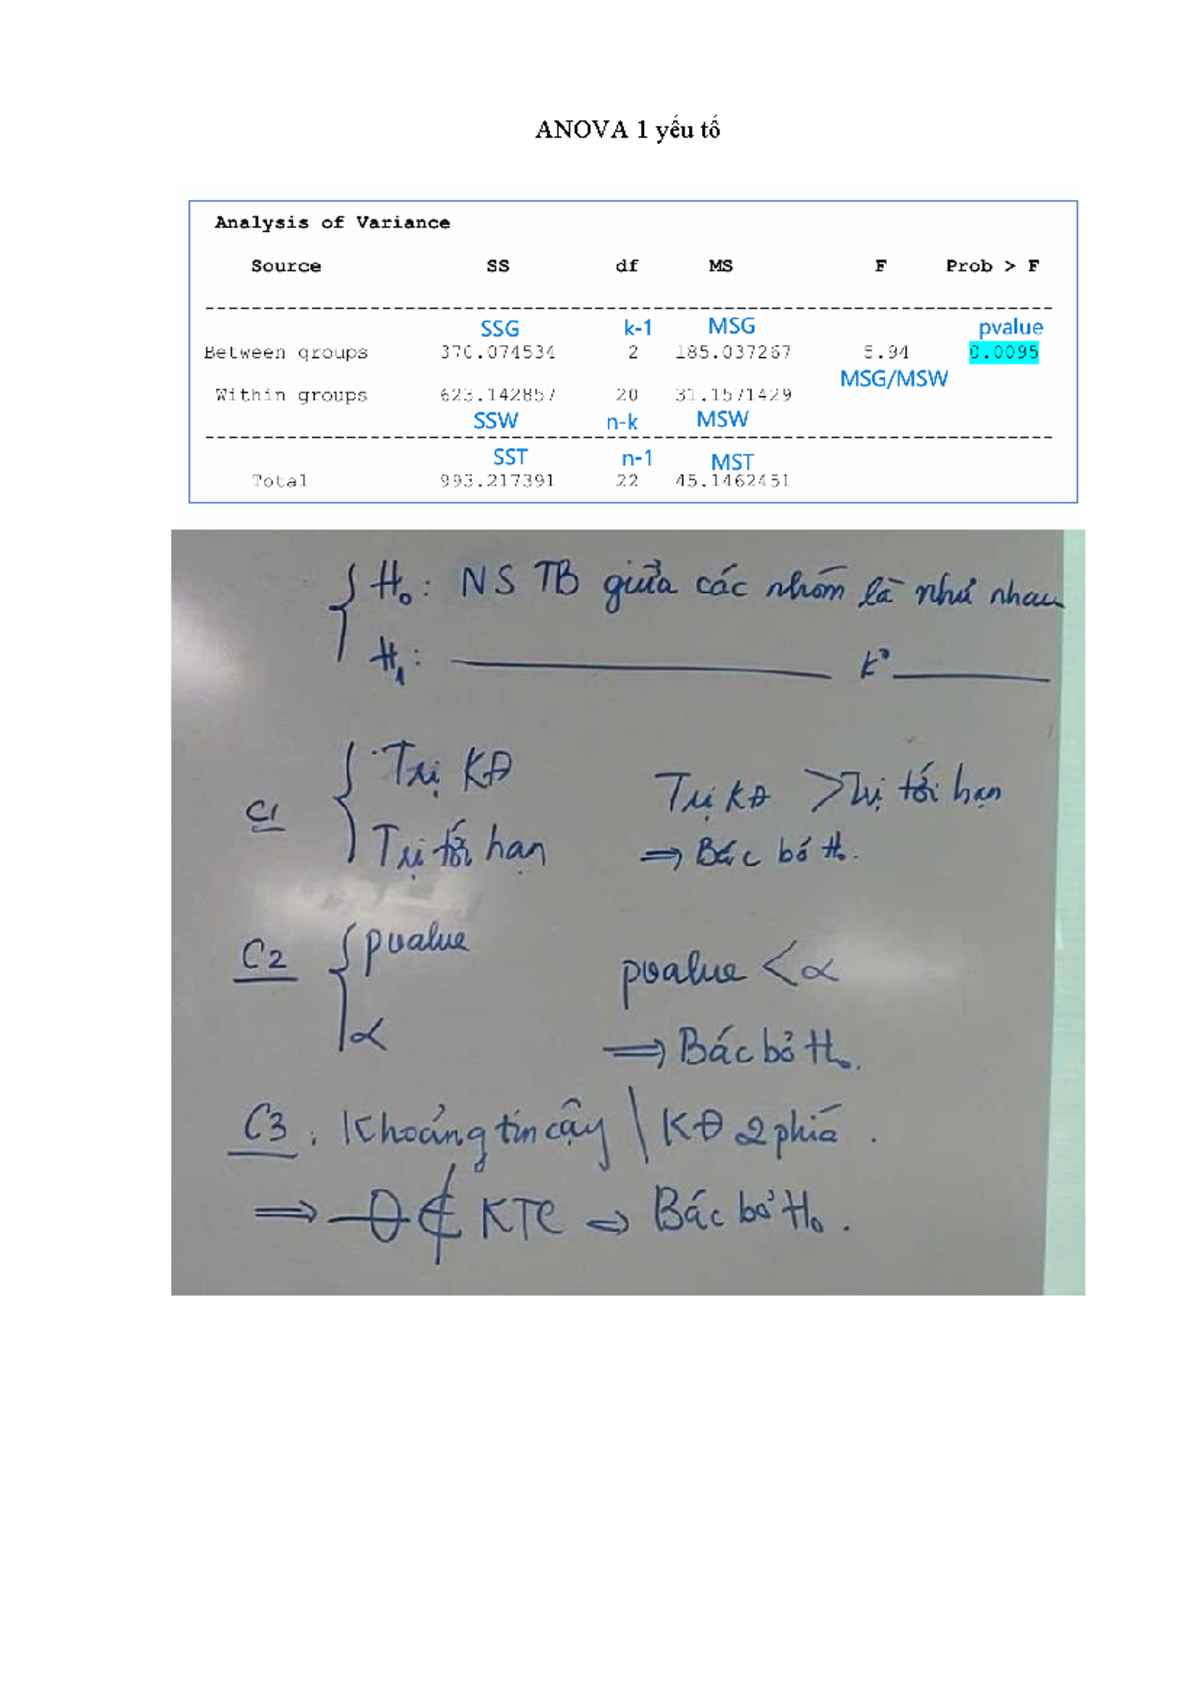 ANOVA 1 yếu tố
Analysis of Variance
Source SS df MS F Prob > F
SSG k-1 MSG pvalue
Between groups 370.074534 2 185.037267 5.94 0.0095
MSG/MSW
Within groups 623.142857 20 31.1571429
SSW n-k MSW
SST n-1 MST
Total 993.217391 22 45.1462451
H₀: NS TB giữa các nhóm là như nhau
H₁: k°
C1 Trị KĐ
Trị tới hạn
Trị KĐ > Trị tới hạn
⇒ Bác bỏ H₀.
C2 pvalue
α
pvalue < α
⇒ Bác bỏ H₀.
C3: Khoảng tin cậy \ KĐ 2 phía.
⇒ 0 ∉ KTC ⇒ Bác bỏ H₀.